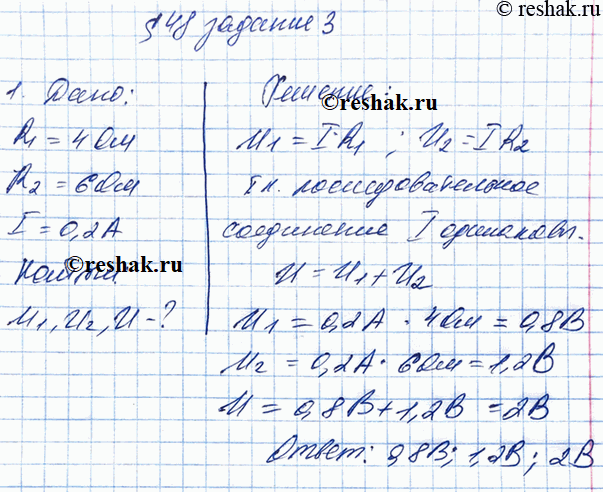 ©reshak.ru
§48 задание 3
1. Дано:
R₁ = 4 Ом
R₂ = 6 Ом
I = 0,2А
©reshak.ru
Найти
U₁, U₂, U - ?
Решение:
©reshak.ru
U₁ = IR₁ ; U₂ = IR₂
т.к. последовательное
соединение I одинаковы.
U = U₁ + U₂
U₁ = 0,2А · 4 Ом = 0,8В
U₂ = 0,2А · 6 Ом = 1,2В
U = 0,8В + 1,2В = 2В
Ответ: 0,8В; 1,2В; 2В
©reshak.ru